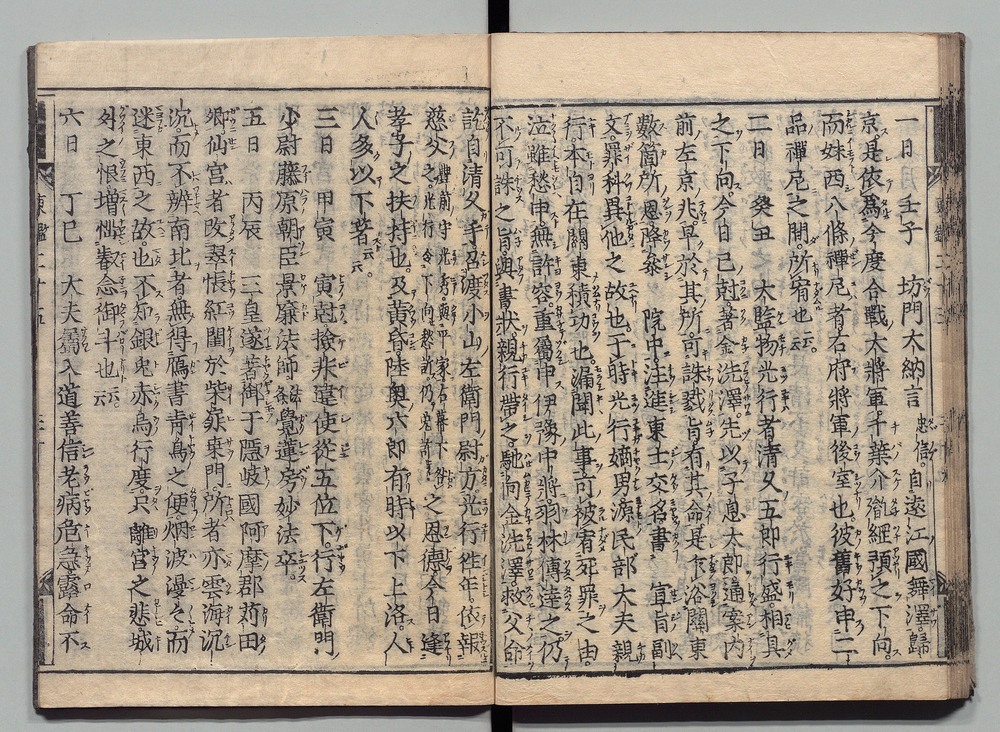 一日 壬子 坊門大納言忠信。自遠江國舞澤歸
京。是依爲今度合戰大將軍千葉介胤綱預之下向。
而妹西八條禪尼者右府將軍後室也彼舊好申二
品禪尼之間。所宥也云云。
二日 癸丑 大監物光行者清久五郎行盛。相具
之下向。今日巳尅著金洗澤。先以子息太郎通案内
前左京兆早於其所可誅戮旨有其命是乍浴關東
數箇所恩降參 院中注進東士交名書 宣旨副
文。罪科異他之故也于時光行嫡男源民部大夫親
行本自在關東積功也。漏聞此事可被宥死罪之由。
泣雖愁申無許容重屬申伊豫中將。羽林傳達之仍
不可誅之旨。與書状親行帶之。馳向金洗澤救父命
訖自清久手召渡小山左衛門尉方光行往年依報
慈父之恩德今日逢
孝子之扶持也及黄昏陸奥六郎有時以下上洛人
人多以下著云云。
三日 甲寅 寅尅撿非違使從五位下行左衛門
少尉藤原朝臣景廉法師法名覺蓮房妙法卒。
五日 丙辰 二皇遂著御于隱岐國阿摩郡苅田
郷仙宮者改翠帳紅閨於柴扉桑門所者亦雲海沉
沉。而不辨南北者。無得鴈書青鳥之便烟波漫之而
迷東西之故也。不知銀兎赤烏行度只離宮之悲城
外之恨増惱叡念御斗也云云。
六日 丁巳 大夫屬入道善信老病危急露命不